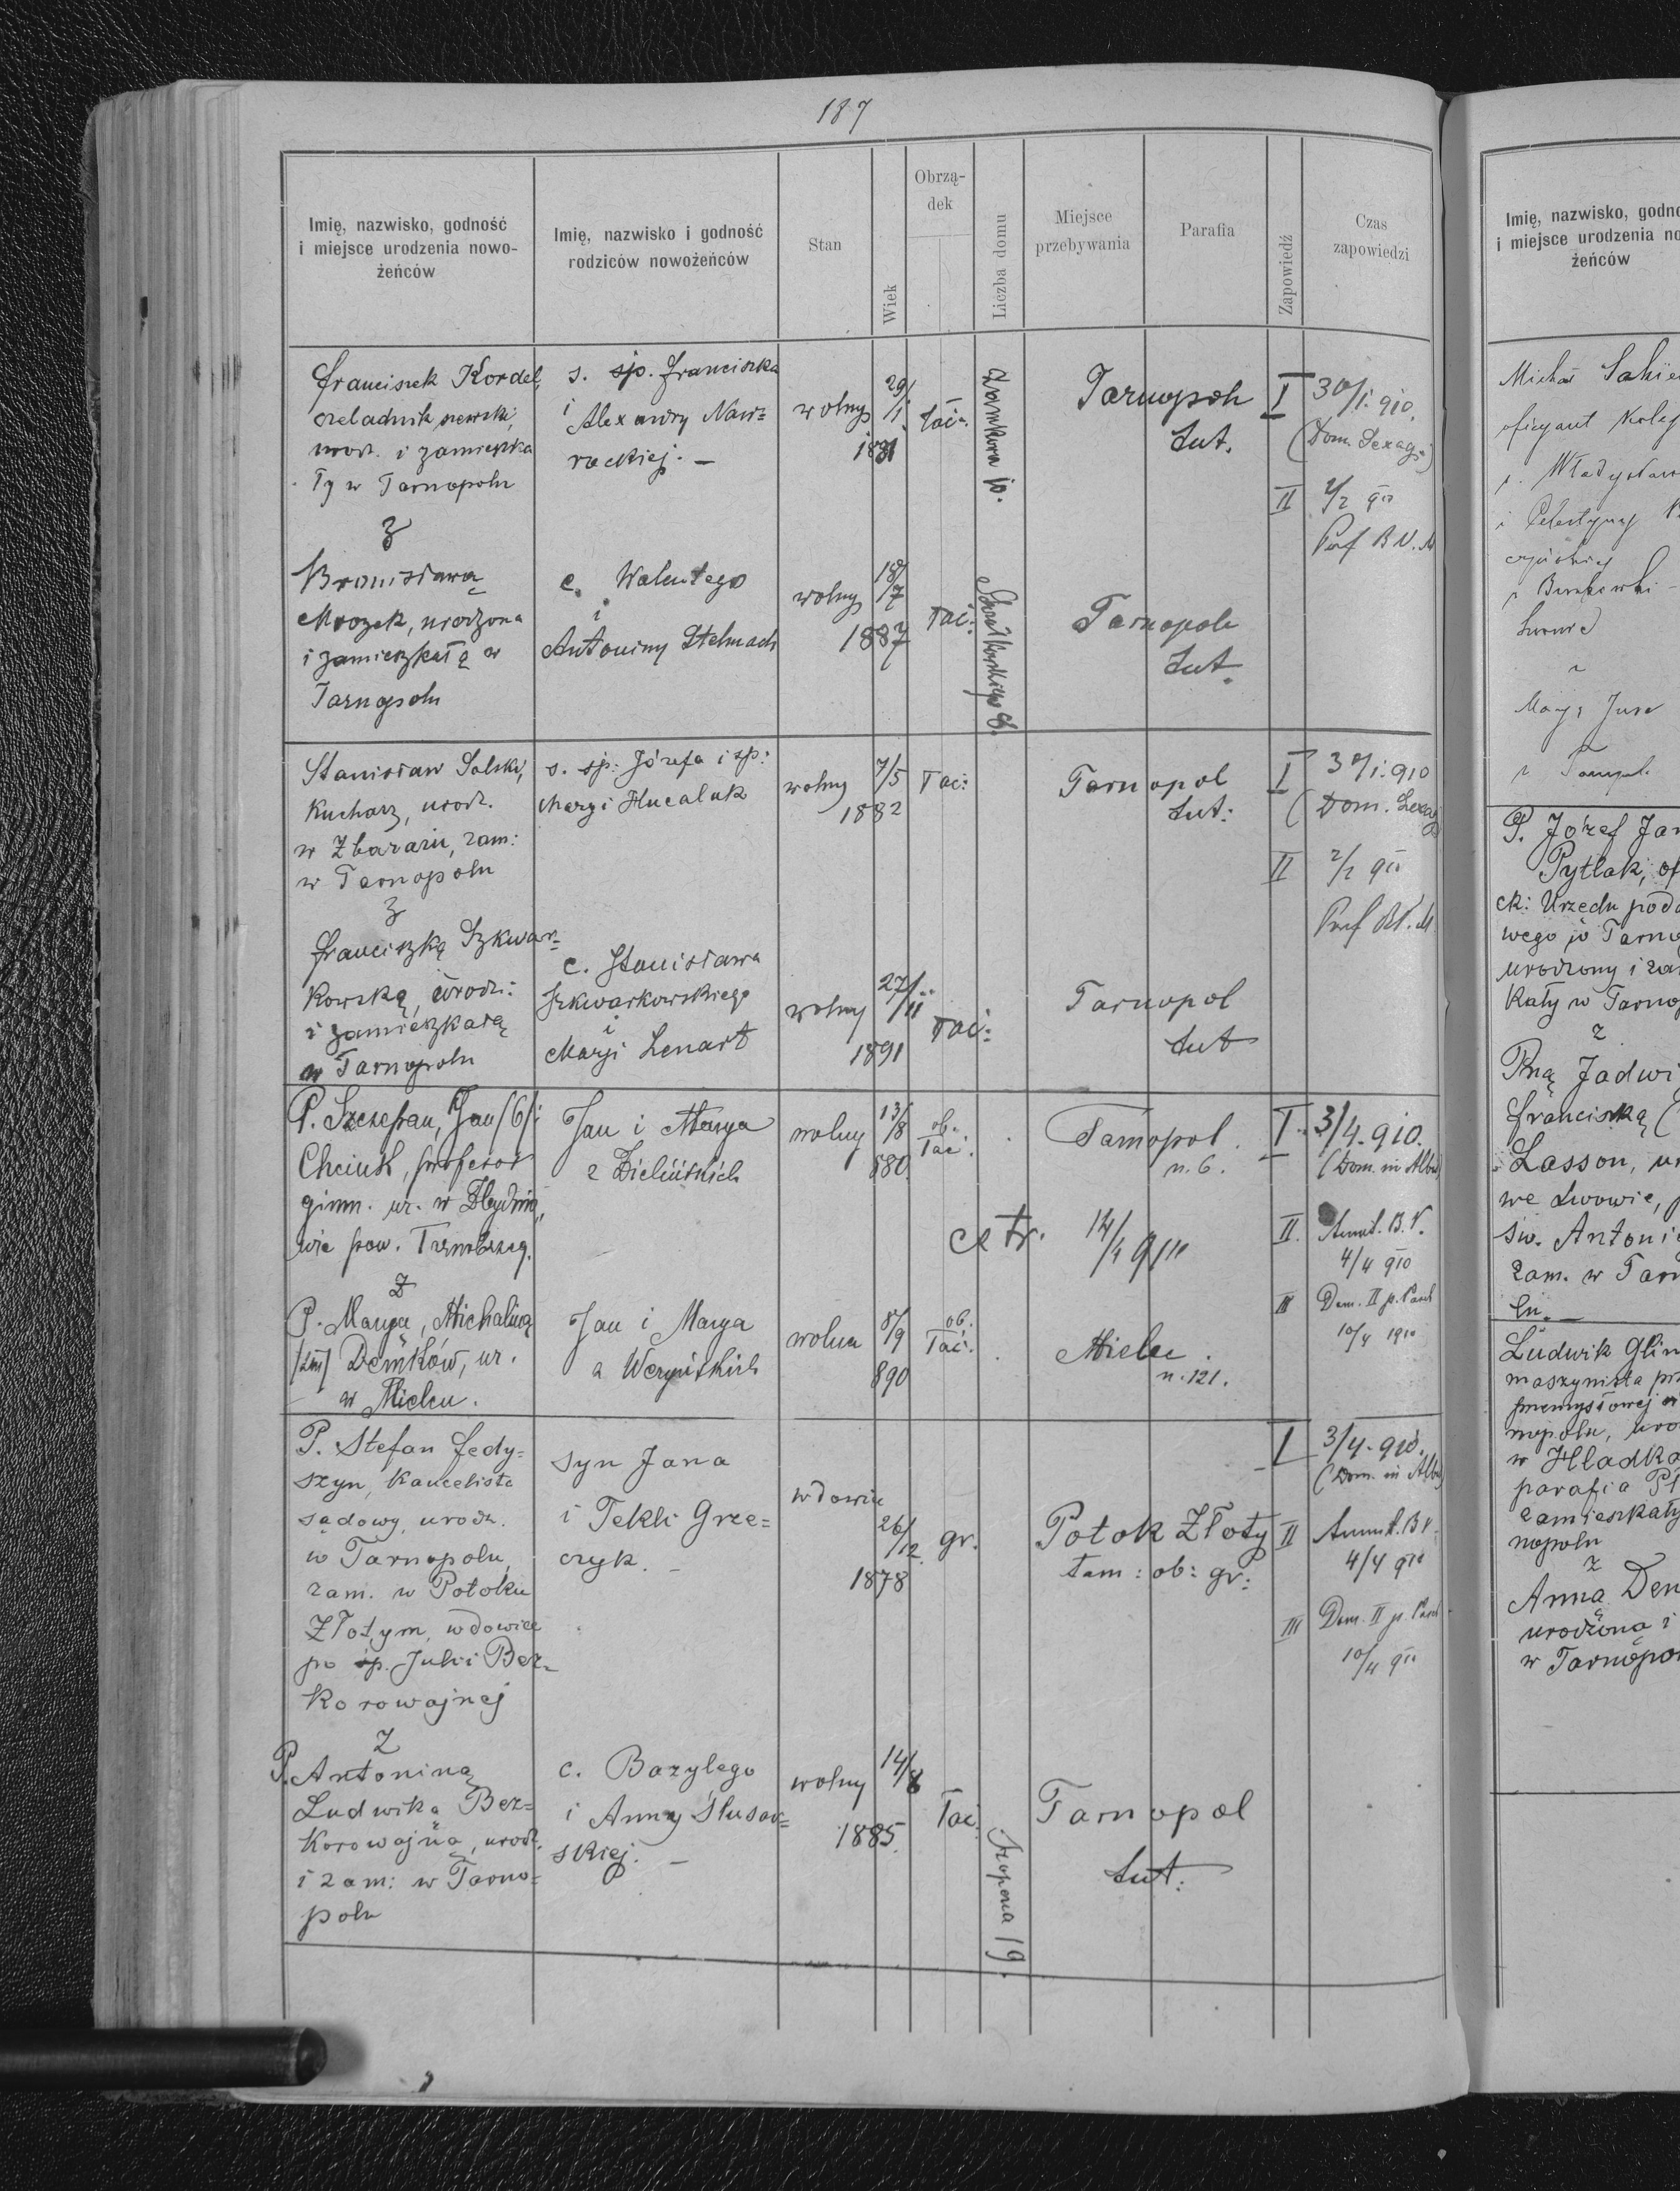 187
Imię, nazwisko, godność
i miejsce urodzenia nowo-
żeńców
Imię, nazwisko i godność
rodziców nowożeńców
Stan
Wiek
Obrzą-
dek
Liczba domu
Miejsce
przebywania
Parafia
Zapowiedź
Czas
zapowiedzi
Franciszek Kordel,
czeladnik szewski,
urodz. i zamieszka
ły w Tarnopolu
s. śp. Franciszka
i
Alexandry Naw=
rockiej. —
wolny
29/1
1881
łac:
Zamkowa 10.
Tarnopol
tut.
I
30/1. 910.
(Dom. Sexag.)
II
2/2 910
Purf B V. M
z
Bronisławą
Mrozek, urodzona
i zamieszkałą w
Tarnopolu
c. Walentego
i
Antoniny Stelmach
wolny
18/7
1887
łac:
Tarnopol
tut.
Stanisław Salski,
kucharz, urodz.
w Zbarażu, zam:
w Tarnopolu
s. śp: Józefa i śp:
Maryi Hucaluk
wolny
7/5
1882
łac:
Tarnopol
tut:
I
30/1. 910
(Dom. Sexag
II
2/2 910
Purf BV. M
z
Franciszką Szkwar=
kowską, urodz:
i zamieszkałą
w Tarnopolu
c. Stanisława
Szkwarkowskiego
i
Maryi Lenart
wolny
27/11
1891
łac:
Tarnopol
tut
P. Szczepan, Jan
Chciuk, profesor
gimn. ur. w
wie pow. Tarnobrzeg.
Jan i Marya
z Zielińskich
wolny
13/8
880
ob.
łac.
Tarnopol
n. 6.
I. 3/4. 910.
(Dom. in Albis)
II. Annunt. B. V.
4/4 910
III Dom. II p. Pasch
10/4 1910
z
P. Marya, Michaliną
Demków, ur.
w Mielcu.
Jan i Marya
z Weryńskich
wolna
8/9
890
ob.
łac.
Mielec
n. 121.
P. Stefan Fedy=
szyn, kancelista
sądowy, urodz.
w Tarnopolu,
zam. w Potoku
Złotym, wdowiec
po śp. Julii Bez=
korowajnej
syn Jana
i Tekli Grze=
czyk. —
wdowiec
26/12
1878
gr.
Potok Złoty
tam: ob: gr:
I
3/4. 910.
(Dom. in Albis)
II Annunt. B V.
4/4 910
III Dom. II p. Pasch
10/4 910
z
P. Antoniną
Ludwiką Bez=
korowajną, urodz.
i zam: w Tarno=
polu
c. Bazylego
i Anny Ślusar=
skiej. —
wolny
14/8
1885.
łac.
Tarnopol
tut.
Imię, nazwisko, godno
i miejsce urodzenia no
żeńców
Michał
oficyant kolej
P. Józef Jan
Pytlak, of
ck: Urzędu poda
wego w Tarno
urodzony i zam
kały w Tarno
z
Pną Jadwi
Franciszką (
Lasson, ur
we Lwowie,
św. Antoni
zam. w Tarn
lu. —
Ludwik Glin
maszynista
przemysłowej w
nopolu, uro
w Hładka
parafia
zamieszkały
nopolu
z
Anną Dem
urodzoną i
w Tarnopol